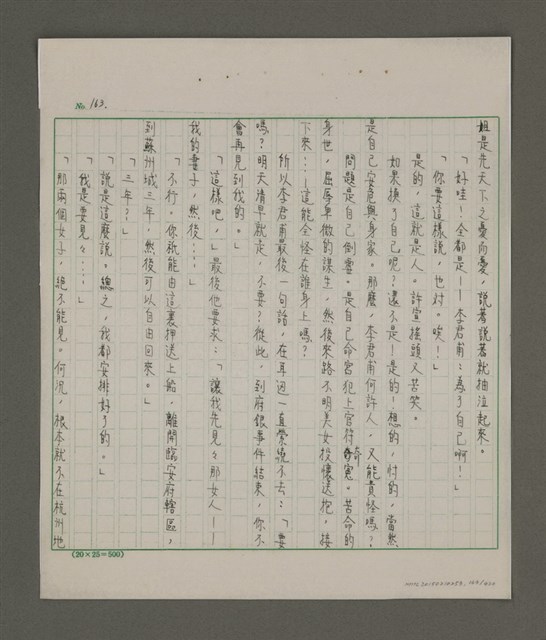 No. 163.
姐是先天下之憂而憂，說著說著就抽泣起來。
「好哇！全都是——李君甫：為了自己啊！」
「你要這樣說，也對。唉！」
是的，這就是人。許宣搖頭又苦笑。
如果換了自己呢？還不是！是的！想的，忖的，當然
是自己安危與身家。那麼，李君甫何許人，又能責怪嗎？
問題是自己倒霉。是自己命宮犯上官符奇冤。苦命的
身世，屈辱卑微的謀生，然後來路不明美女投懷送抱，接
下來……這能全怪在誰身上嗎？
所以李君甫最後一句話，在耳邊一直縈繞不去：「要
嗎？明天清早就走，不要？從此，到府銀事件結束，你不
會再見到我的。」
「這樣吧，」最後他要求：「讓我先見見那女人——
我的妻子，然後……」
「不行。你祇能由這裏押送上船，離開臨安府轄區，
到蘇州城三年，然後可以自由回來。」
「三年？」
「說是這麼說。總之，我都安排好了的。」
「我是要見見……」
「那兩個女子，絕不能見。何況，根本就不在杭州地
(20×25=500)